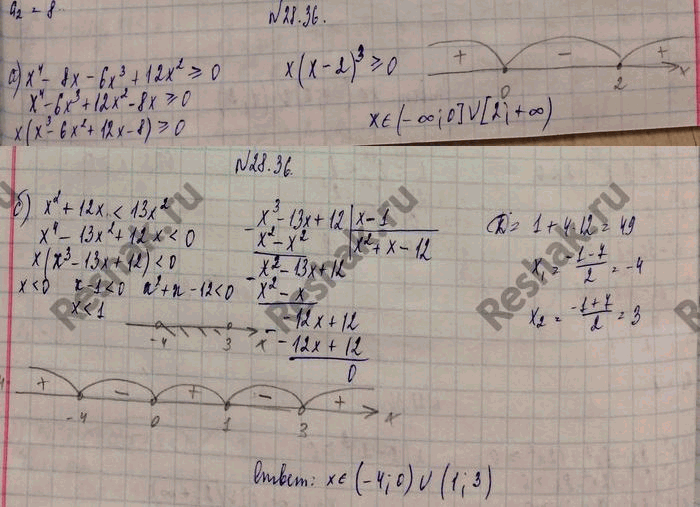 a₂ = 8
№28.36.
а) x⁴ - 8x - 6x³ + 12x² ≥ 0
x⁴ - 6x³ + 12x² - 8x ≥ 0
x(x³ - 6x² + 12x - 8) ≥ 0
x(x-2)³ ≥ 0
+ - +
0 2 x
x ∈ (-∞; 0] ∪ [2; +∞)
№28.36.
б) x² + 12x < 13x²
x⁴ - 13x² + 12x < 0
x(x³ - 13x + 12) < 0
x < 0 x - 1 < 0 x² + x - 12 < 0
x < 1
-4 3 x
x³ - 13x + 12 | x - 1
x² - x² | x² + x - 12
x² - 13x + 12
x² - x
-12x + 12
-12x + 12
0
D = 1 + 4·12 = 49
x₁ = (-1-7)/2 = -4
x₂ = (-1+7)/2 = 3
+ - + - +
-4 0 1 3 x
Ответ: x ∈ (-4; 0) ∪ (1; 3)
Reshak.ru
Reshak.ru
Reshak.ru